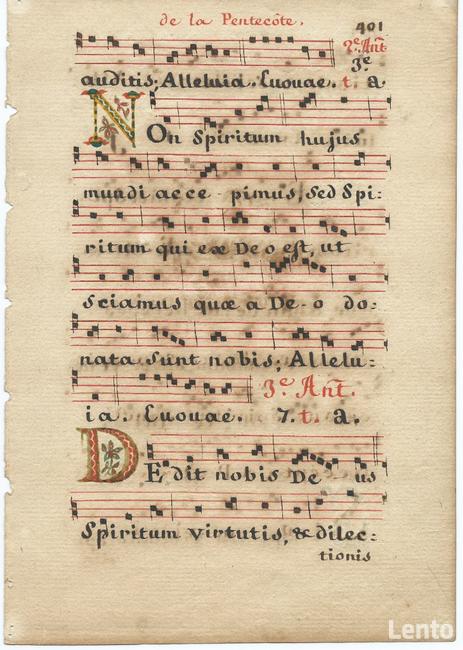 de la Pentecôte. 401
2.e Ant.
3.e
auditis, Alleluia. Euouae. t. a
NOn Spiritum hujus
mundi acce - pimus, sed Spi:
ritum qui ex Deo est, ut
sciamus quæ a De - o do:
nata sunt nobis, Allelu:
3.e Ant.
ia. Euouae. 7. t. a.
DEdit nobis De us
Spiritum virtutis, & dilec:
tionis
Lento